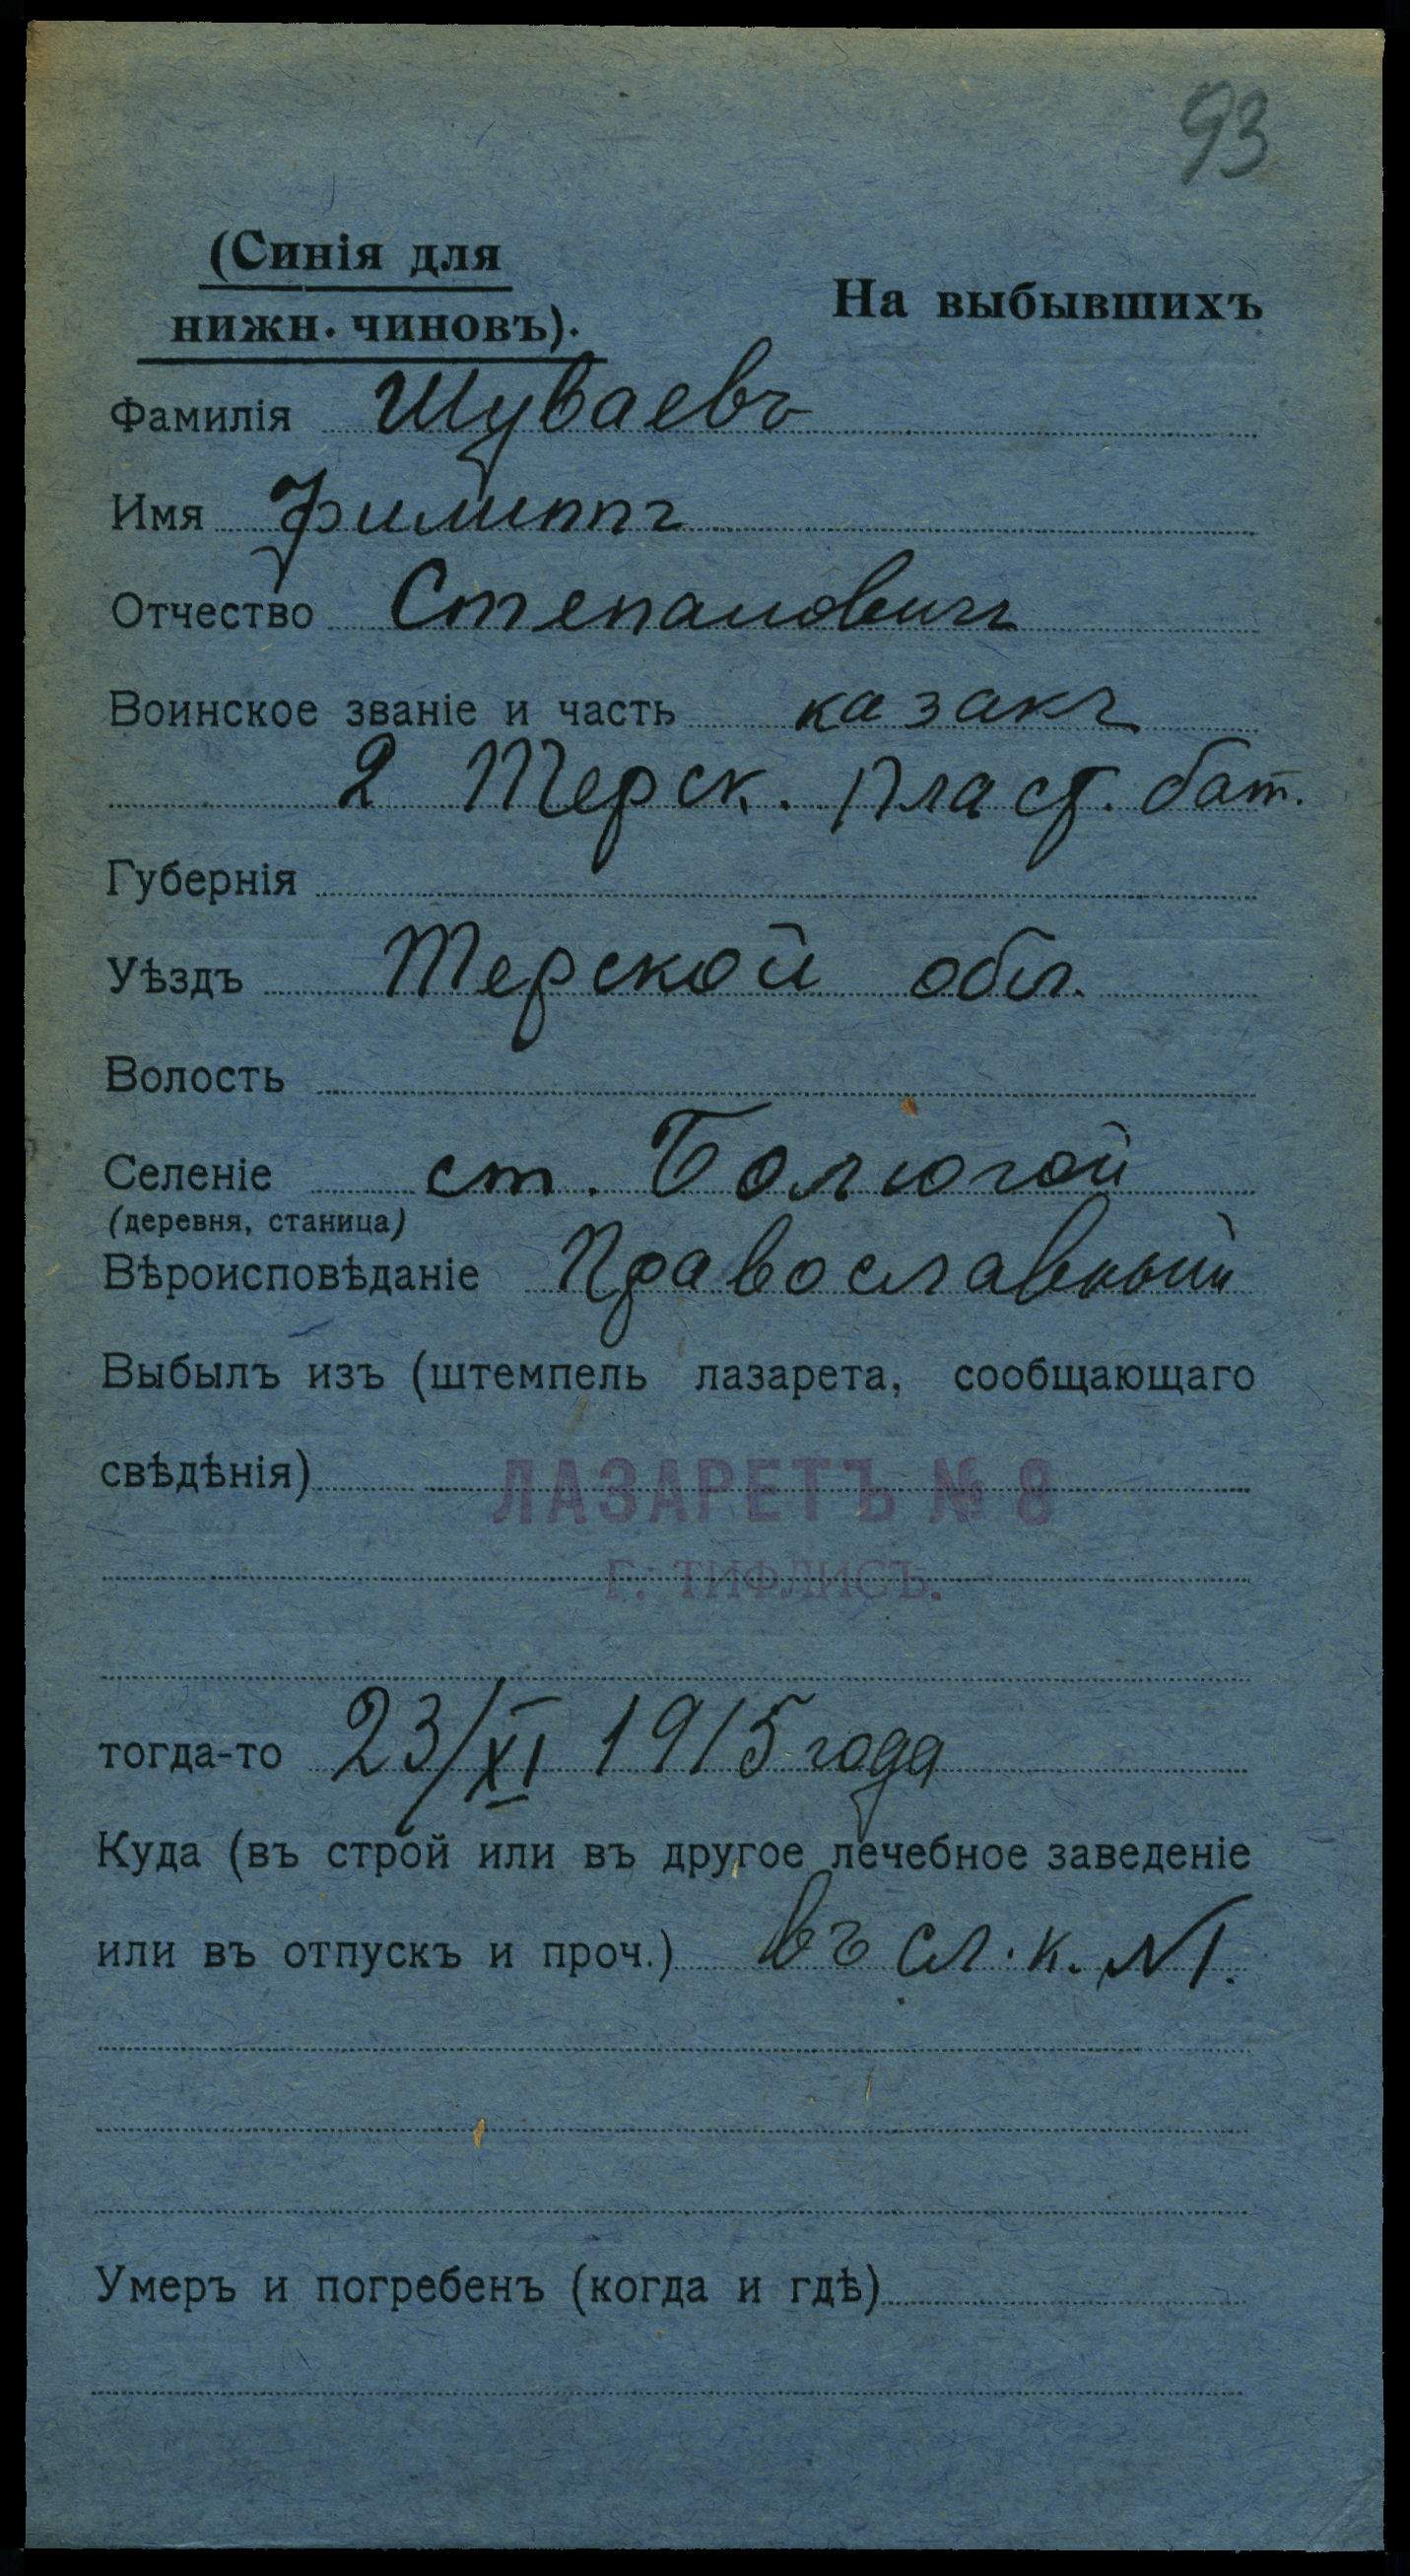 93
(Синія для
нижн. чиновъ).
На выбывшихъ
Фамилія Шуваевъ
Имя Филиппъ
Отчество Степановичъ
Воинское званіе и часть казакъ
2 Терск. пласт. бат.
Губернія
Уѣздъ Терской обл.
Волость
Селеніе ст. Болюгой
(деревня, станица)
Вѣроисповѣданіе Православный
Выбылъ изъ (штемпель лазарета, сообщающаго
свѣдѣнія) ЛАЗАРЕТЪ № 8
Г. ТИФЛИСЪ.
тогда-то 23/XI 1915 года
Куда (въ строй или въ другое лечебное заведеніе
или въ отпускъ и проч.) въ сл. к. № 1.
Умеръ и погребенъ (когда и гдѣ)